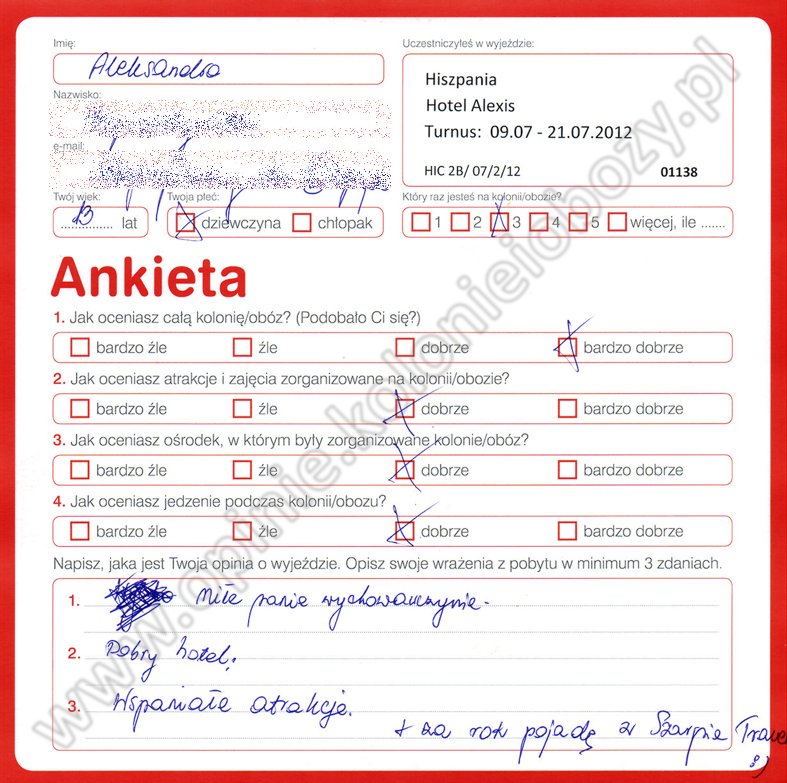 Imię:
Aleksandra
Nazwisko:
e-mail:
Uczestniczyłeś w wyjeździe:
Hiszpania
Hotel Alexis
Turnus: 09.07 - 21.07.2012
HIC 2B/ 07/2/12 01138
Twój wiek:
13 lat
Twoja płeć:
dziewczyna chłopak
Który raz jesteś na kolonii/obozie?
1 2 3 4 5 więcej, ile .......
Ankieta
1. Jak oceniasz całą kolonię/obóz? (Podobało Ci się?)
bardzo źle źle dobrze bardzo dobrze
2. Jak oceniasz atrakcje i zajęcia zorganizowane na kolonii/obozie?
bardzo źle źle dobrze bardzo dobrze
3. Jak oceniasz ośrodek, w którym były zorganizowane kolonie/obóz?
bardzo źle źle dobrze bardzo dobrze
4. Jak oceniasz jedzenie podczas kolonii/obozu?
bardzo źle źle dobrze bardzo dobrze
Napisz, jaka jest Twoja opinia o wyjeździe. Opisz swoje wrażenia z pobytu w minimum 3 zdaniach.
1. Miłe panie wychowawczynie.
2. Dobry hotel.
3. Wspaniałe atrakcje.
+ za rok pojadę z Szarpie Travel
:)
www.opinie.kolonieiobozy.pl